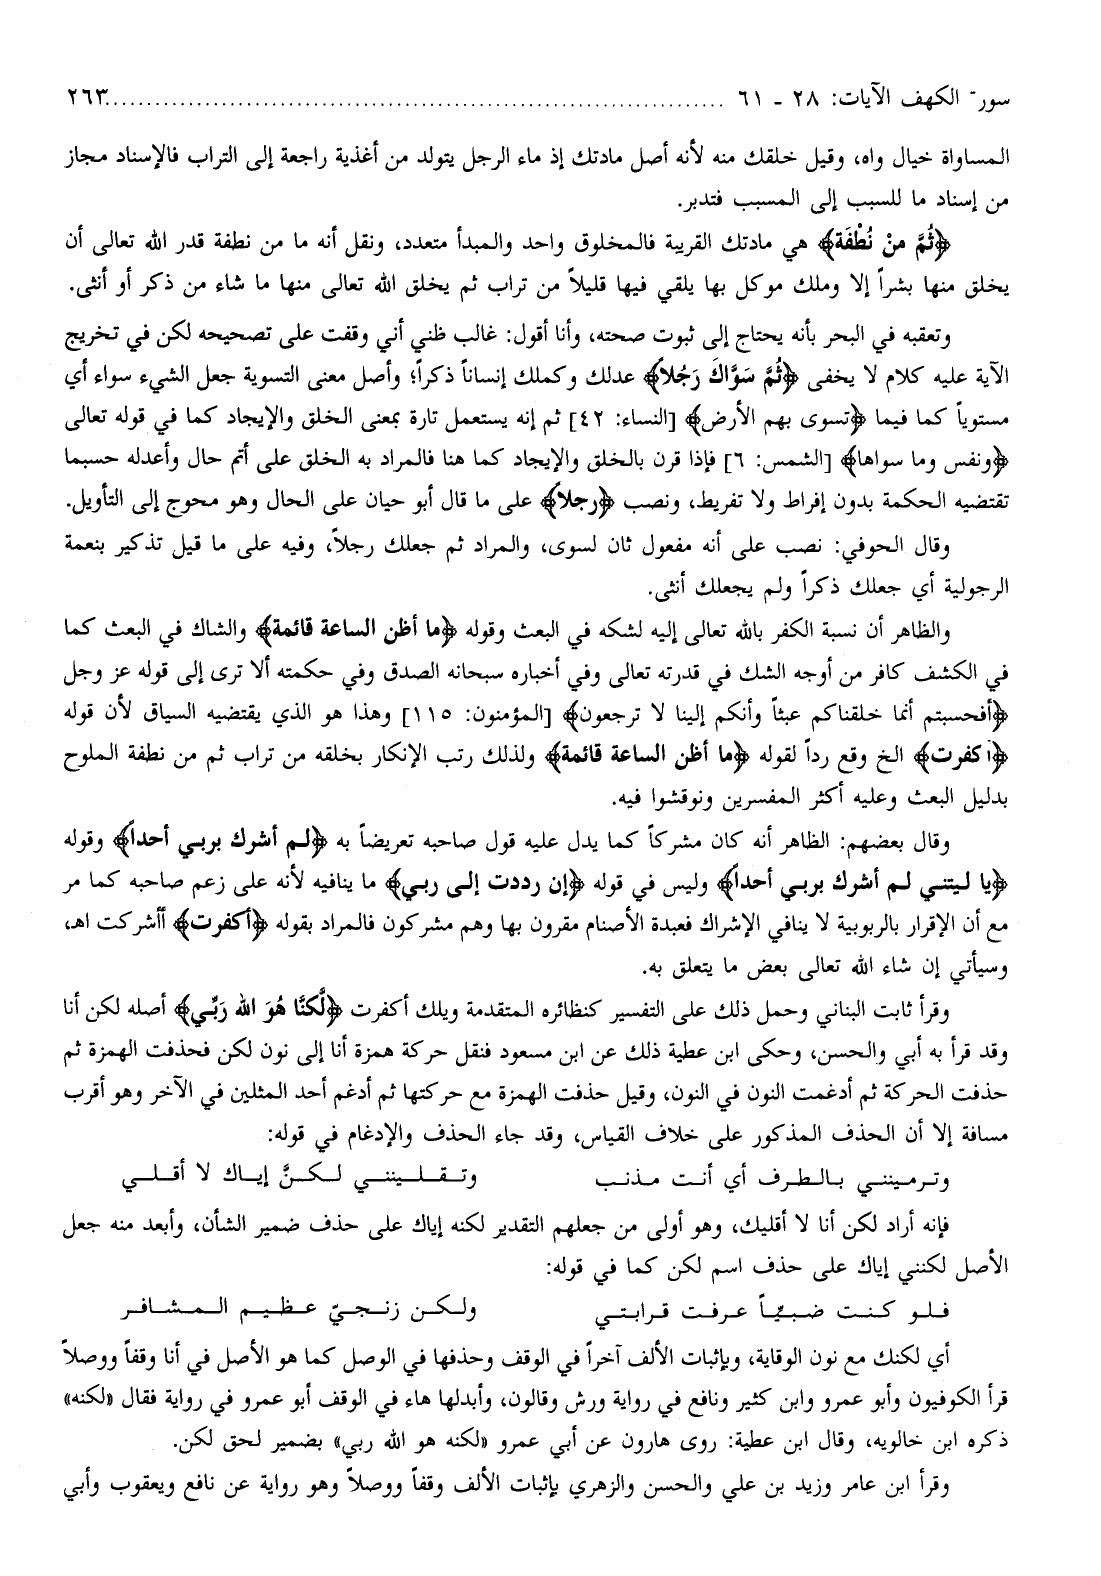 سور الكهف الآيات: ٢٨ ـ ٦١ ................................................................ ٢٦٣
المساواة خيال واه، وقيل خلقك منه لأنه أصل مادتك إذ ماء الرجل يتولد من أغذية راجعة إلى التراب فالإسناد مجاز
من إسناد ما للسبب إلى المسبب فتدبر.
﴿ثُمَّ مِنْ نُطْفَة﴾ هي مادتك القريبة فالمخلوق واحد والمبدأ متعدد، ونقل أنه ما من نطفة قدر الله تعالى أن
يخلق منها بشراً إلا وملك موكل بها يلقي فيها قليلاً من تراب ثم يخلق الله تعالى منها ما شاء من ذكر أو أنثى.
وتعقبه في البحر بأنه يحتاج إلى ثبوت صحته، وأنا أقول: غالب ظني أني وقفت على تصحيحه لكن في تخريج
الآية عليه كلام لا يخفى ﴿ثُمَّ سَوَّاكَ رَجُلاً﴾ عدلك وكملك إنساناً ذكراً؛ وأصل معنى التسوية جعل الشيء سواء أي
مستوياً كما فيما ﴿تسوى بهم الأرض﴾ [النساء: ٤٢] ثم إنه يستعمل تارة بمعنى الخلق والإيجاد كما في قوله تعالى
﴿ونفس وما سواها﴾ [الشمس: ٦] فإذا قرن بالخلق والإيجاد كما هنا فالمراد به الخلق على أتم حال وأعدله حسبما
تقتضيه الحكمة بدون إفراط ولا تفريط، ونصب ﴿رجلاً﴾ على ما قال أبو حيان على الحال وهو محوج إلى التأويل.
وقال الحوفي: نصب على أنه مفعول ثان لسوى، والمراد ثم جعلك رجلاً، وفيه على ما قيل تذكير بنعمة
الرجولية أي جعلك ذكراً ولم يجعلك أنثى.
والظاهر أن نسبة الكفر بالله تعالى إليه لشكه في البعث وقوله ﴿ما أظن الساعة قائمة﴾ والشاك في البعث كما
في الكشف كافر من أوجه الشك في قدرته تعالى وفي أخباره سبحانه الصدق وفي حكمته ألا ترى إلى قوله عز وجل
﴿أفحسبتم أنما خلقناكم عبثاً وأنكم إلينا لا ترجعون﴾ [المؤمنون: ١١٥] وهذا هو الذي يقتضيه السياق لأن قوله
﴿أكفرت﴾ الخ وقع رداً لقوله ﴿ما أظن الساعة قائمة﴾ ولذلك رتب الإنكار بخلقه من تراب ثم من نطفة الملوح
بدليل البعث وعليه أكثر المفسرين ونوقشوا فيه.
وقال بعضهم: الظاهر أنه كان مشركاً كما يدل عليه قول صاحبه تعريضاً به ﴿لم أشرك بربي أحداً﴾ وقوله
﴿يا ليتني لم أشرك بربي أحداً﴾ وليس في قوله ﴿إن رددت إلى ربي﴾ ما ينافيه لأنه على زعم صاحبه كما مر
مع أن الإقرار بالربوبية لا ينافي الإشراك فعبدة الأصنام مقرون بها وهم مشركون فالمراد بقوله ﴿أكفرت﴾ أأشركت اهـ،
وسيأتي إن شاء الله تعالى بعض ما يتعلق به.
وقرأ ثابت البناني وحمل ذلك على التفسير كنظائره المتقدمة ويلك أكفرت ﴿لَّكنَّا هُوَ الله رَبِّي﴾ أصله لكن أنا
وقد قرأ به أبي والحسن، وحكى ابن عطية ذلك عن ابن مسعود فنقل حركة همزة أنا إلى نون لكن فحذفت الهمزة ثم
حذفت الحركة ثم أدغمت النون في النون، وقيل حذفت الهمزة مع حركتها ثم أدغم أحد المثلين في الآخر وهو أقرب
مسافة إلا أن الحذف المذكور على خلاف القياس، وقد جاء الحذف والإدغام في قوله:
وترمينني بالطرف أي أنت مذنب وتقلينني لكنَّ إياك لا أقلي
فإنه أراد لكن أنا لا أقليك، وهو أولى من جعلهم التقدير لكنه إياك على حذف ضمير الشأن، وأبعد منه جعل
الأصل لكنني إياك على حذف اسم لكن كما في قوله:
فلو كنت ضبيّاً عرفت قرابتي ولكن زنجيّ عظيم المشافر
أي لكنك مع نون الوقاية، وبإثبات الألف آخراً في الوقف وحذفها في الوصل كما هو الأصل في أنا وقفاً ووصلاً
قرأ الكوفيون وأبو عمرو وابن كثير ونافع في رواية ورش وقالون، وأبدلها هاء في الوقف أبو عمرو في رواية فقال «لكنه»
ذكره ابن خالويه، وقال ابن عطية: روى هارون عن أبي عمرو «لكنه هو الله ربي» بضمير لحق لكن.
وقرأ ابن عامر وزيد بن علي والحسن والزهري بإثبات الألف وقفاً ووصلاً وهو رواية عن نافع ويعقوب وأبي